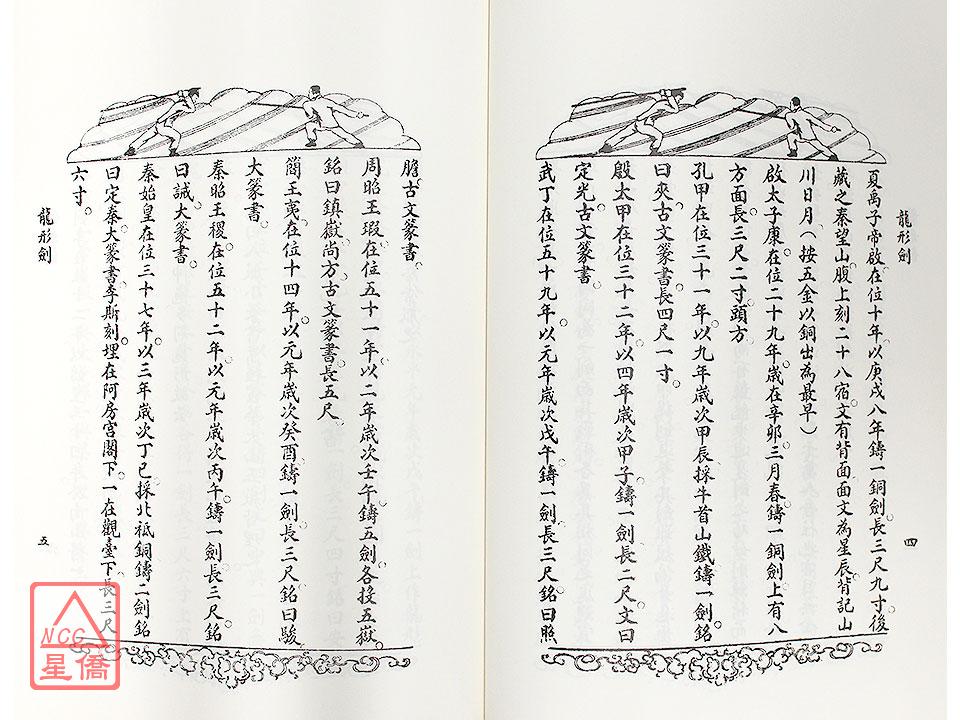 龍形劍
夏禹子帝啟在位十年。以庚戌八年鑄一銅劍。長三尺九寸。後
藏之秦望山。腹上刻二十八宿。文有背面。面文為星辰。背記山
川日月。（按五金以銅出為最早）
啟太子康。在位二十九年。歲在辛卯。三月春。鑄一銅劍。上有八
方面。長三尺二寸。頭方
孔甲在位三十一年。以九年歲次甲辰。採牛首山鐵鑄一劍。銘
曰夾。古文篆書。長四尺一寸。
殷太甲在位三十二年。以四年歲次甲子。鑄一劍。長二尺。文曰
定光。古文篆書
武丁在位五十九年。以元年歲次戊午。鑄一劍。長三尺。銘曰照
四
膽。古文篆書。
周昭王瑕。在位五十一年。以二年歲次壬午。鑄五劍。各投五嶽。
銘曰鎮嶽尚方。古文篆書。長五尺
簡王夷。在位十四年。以元年歲次癸酉。鑄一劍。長三尺。銘曰駿
大篆書。
秦昭王稷。在位五十二年。以元年歲次丙午。鑄一劍。長三尺。銘
曰誡。大篆書。
秦始皇在位三十七年。以三年歲次丁巳。採北祗銅鑄二劍。銘
曰定秦。大篆書。李斯刻。埋在阿房宮閣下。一在觀臺下。長三尺
六寸。
龍形劍
五
NCC
星僑